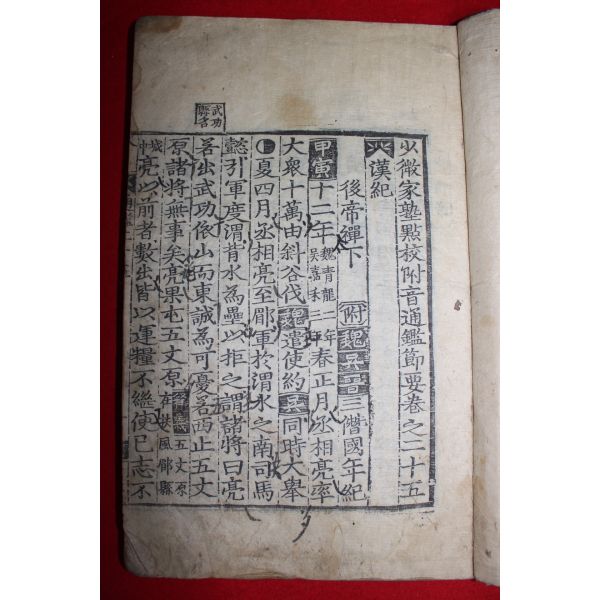 少微家塾點校附音通鑑節要卷之二十五
漢紀
後帝禪下 附魏吳二僭國年紀
甲寅十二年魏青龍二年吳嘉禾三年春正月丞相亮率
大衆十萬由斜谷伐魏遣使約吳同時大擧
夏四月丞相亮至郿軍於渭水之南司馬
懿引軍度渭背水爲壘以拒之謂諸將曰亮
若出武功依山而東誠爲可憂若西止五丈
原諸將無事矣亮果屯五丈原五丈原在扶風郿縣
亮以前者數出皆以運糧不繼使已志不
武功縣名